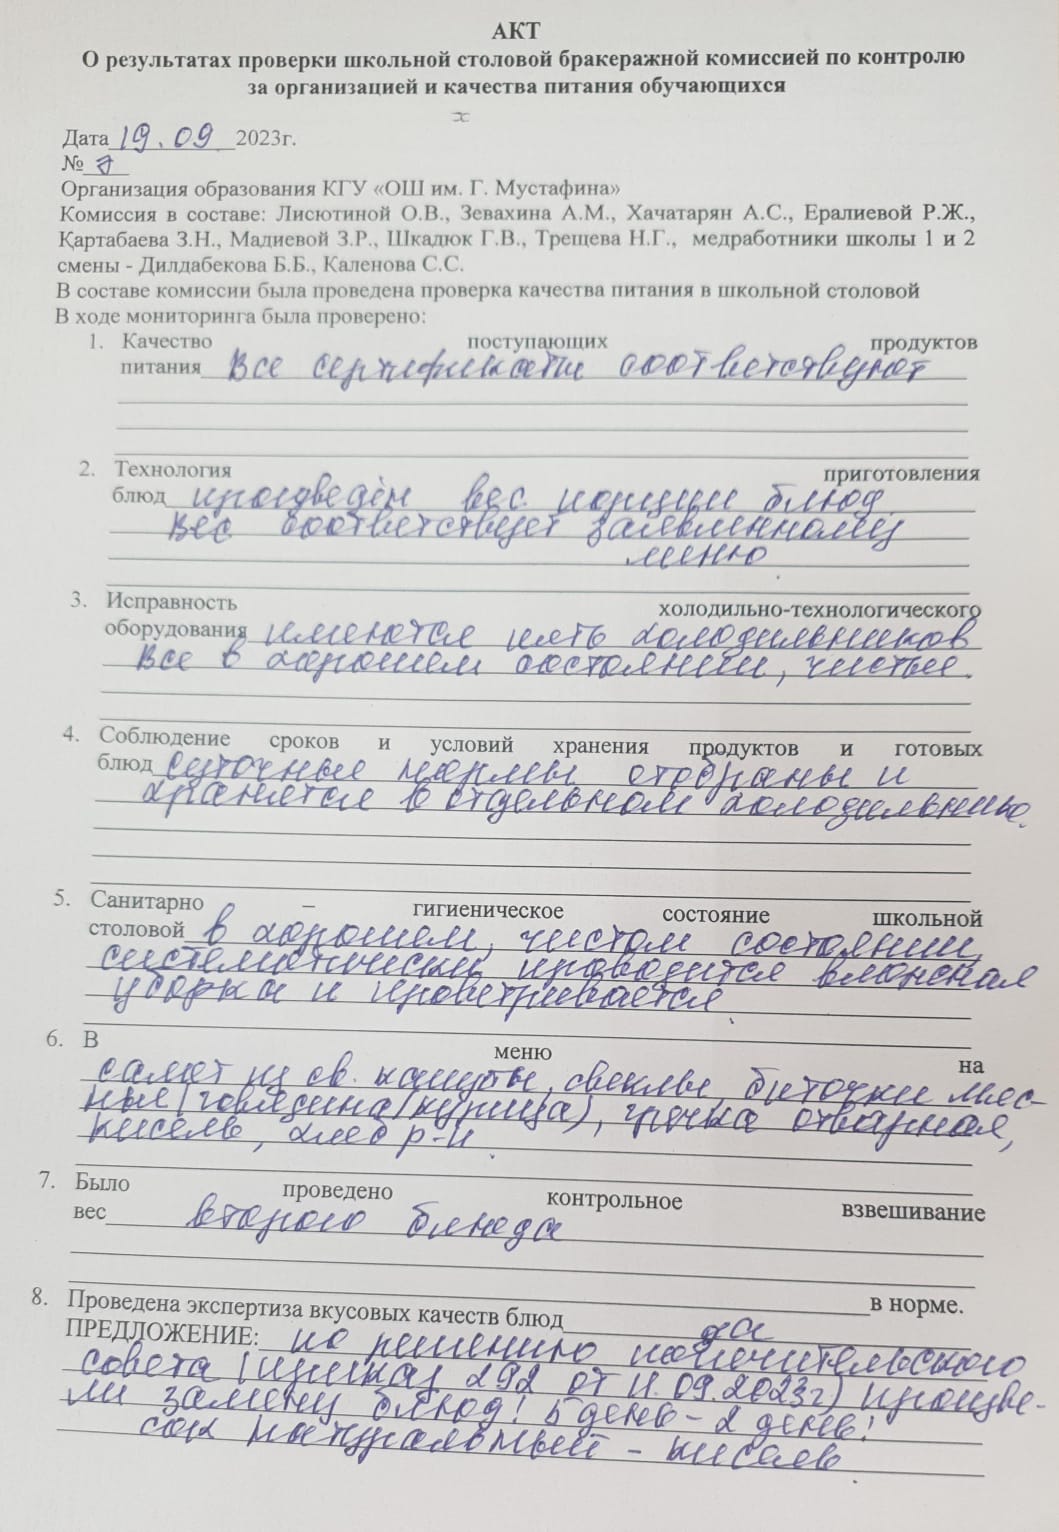 АКТ
О результатах проверки школьной столовой бракеражной комиссией по контролю
за организацией и качества питания обучающихся
Дата 19.09 2023г.
№ 7
Организация образования КГУ «ОШ им. Г. Мустафина»
Комиссия в составе: Лисютиной О.В., Зевахина А.М., Хачатарян А.С., Ералиевой Р.Ж.,
Қартабаева З.Н., Мадиевой З.Р., Шкадюк Г.В., Трещева Н.Г., медработники школы 1 и 2
смены - Дилдабекова Б.Б., Каленова С.С.
В составе комиссии была проведена проверка качества питания в школьной столовой
В ходе мониторинга была проверено:
1. Качество поступающих продуктов
питания Все сертификаты соответствуют
2. Технология приготовления
блюд произведён вес порции блюд.
Вес соответствует заявленному
меню
3. Исправность холодильно-технологического
оборудования имеются пять холодильников
Все в хорошем состоянии, чистые.
4. Соблюдение сроков и условий хранения продуктов и готовых
блюд Суточные нормы отобраны и
хранятся в отдельном холодильнике.
5. Санитарно – гигиеническое состояние школьной
столовой в хорошем, чистом состоянии,
систематически проводится влажная
уборка и проветривается
6. В меню на
салат из св. капусты, свеклы, биточки мяс-
ные (говядина/курица), гречка отварная,
кисель, хлеб р-п.
7. Было проведено контрольное взвешивание
вес второго блюда
8. Проведена экспертиза вкусовых качеств блюд да в норме.
ПРЕДЛОЖЕНИЕ: по решению попечительского
совета (приказ 292 от 11.09.2023г) произве-
ли замену блюд! 5 день - 2 день!
сок натуральный - кисель